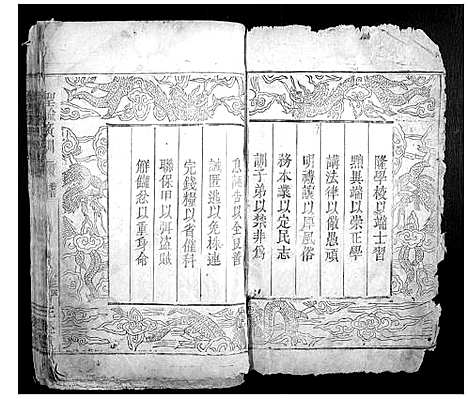 隆學校以端士習
黜異端以崇正學
講法律以儆愚頑
明禮讓以厚風俗
務本業以定民志
訓子弟以禁非為
息誣告以全良善
誡匿逃以免株連
完錢糧以省催科
聯保甲以弭盜賊
解讎忿以重身命
聖諭廣訓